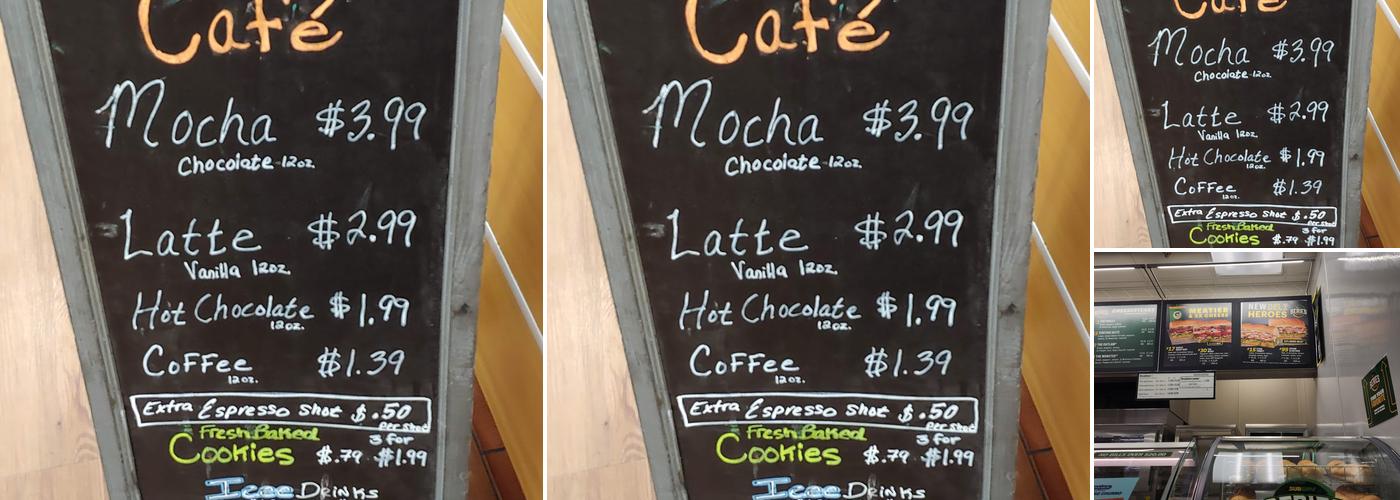 Café
Mocha $3.99
Chocolate 12oz.
Latte $2.99
Vanilla 12oz.
Hot Chocolate $1.99
12oz.
Coffee $1.39
12oz.
Extra Espresso Shot $.50
per shot
Fresh Baked
3 for
Cookies $.79 $1.99
Icee Drinks
Café
Mocha $3.99
Chocolate 12oz.
Latte $2.99
Vanilla 12oz.
Hot Chocolate $1.99
12oz.
Coffee $1.39
12oz.
Extra Espresso Shot $.50
per shot
Fresh Baked
3 for
Cookies $.79 $1.99
Icee Drinks
Café
Mocha $3.99
Chocolate 12oz.
Latte $2.99
Vanilla 12oz.
Hot Chocolate $1.99
12oz.
Coffee $1.39
12oz.
Extra Espresso Shot $.50
per shot
Fresh Baked
3 for
Cookies $.79 $1.99
MEATIER
NEW DELI
HEROES
NO BILLS OVER $20.00
SUBWAY